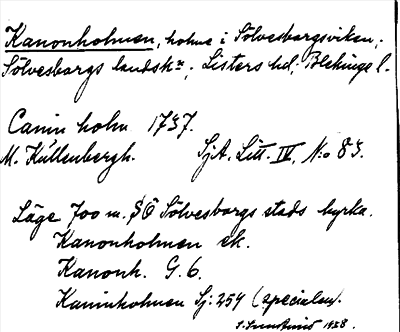 Kanonholmen, holme i Sölvesborgsviken,
Sölvesborgs landskn; Listers hd; Blekinge l.
Canin holm 1737.
M. Küllenbergh. SjA. Litt. IV, N:o 83.
Läge 700 m. SÖ Sölvesborgs stads kyrka.
Kanonholmen ek.
Kanonh. G. 6.
Kaninholmen Sj: 254 (specialen).
1938.